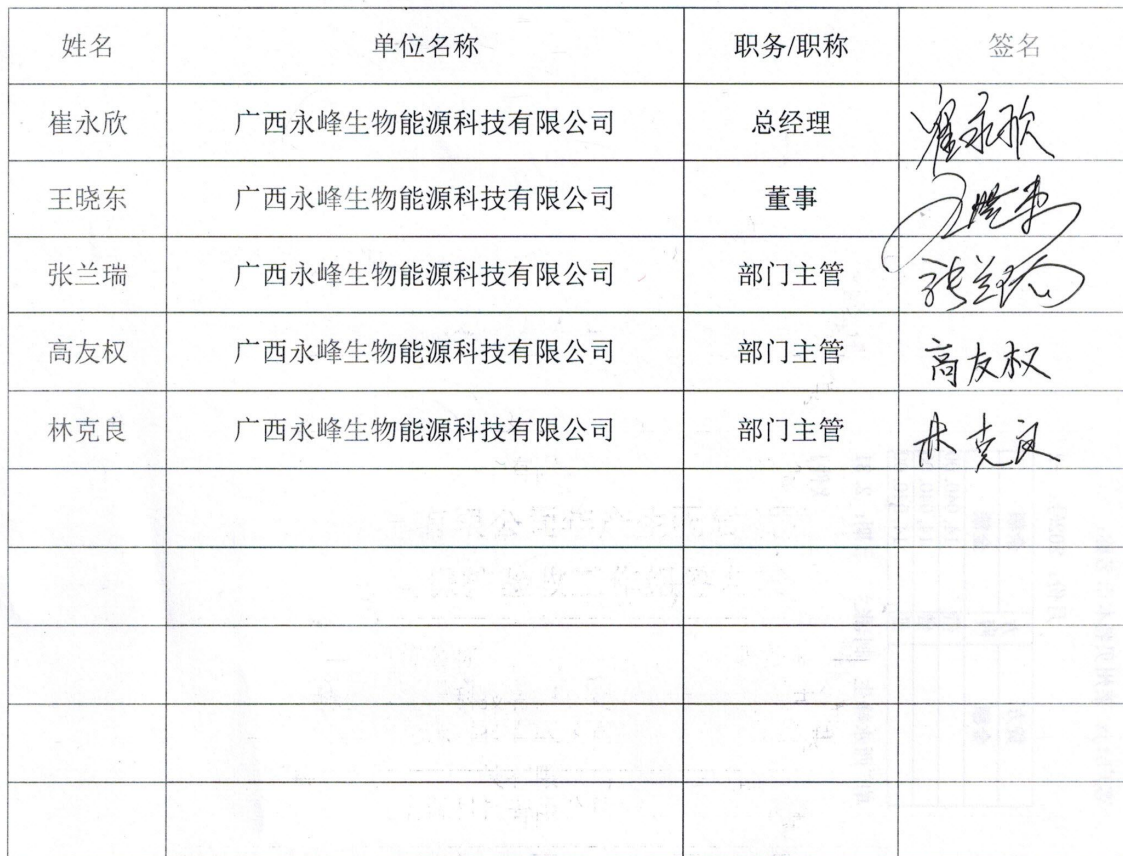 姓名 单位名称 职务/职称 签名
崔永欣 广西永峰生物能源科技有限公司 总经理 崔永欣
王晓东 广西永峰生物能源科技有限公司 董事 王晓东
张兰瑞 广西永峰生物能源科技有限公司 部门主管 张兰瑞
高友权 广西永峰生物能源科技有限公司 部门主管 高友权
林克良 广西永峰生物能源科技有限公司 部门主管 林克良